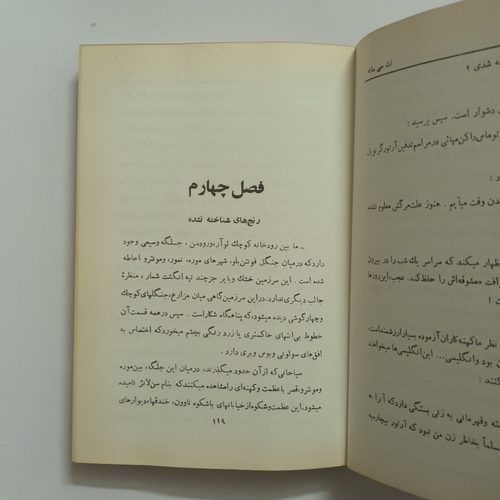 فصل چهارم
رنج‌های شناخته نشده
ـ ما بین رودخانه کوچك لوآر،ورودسن ، جلگه وسیعی وجود
داردکه درمیان جنگل فونتن‌بلو، شهرهای موره، نمور، ومونترو احاطه
شده است . این سرزمین خشك وبایر جزچند تپه انگشت شمار ، منظرۀ
جالب دیگری‌ندارد.دراین‌سرزمین‌گاهی میان مزارع،جنگلهای‌کوچك
وچهارگوشی دیده میشود،که‌پناهگاه شکاراست . سپس درهمه قسمت‌آن
خطوط بی‌انتهای خاکستری یا زرد رنگی بچشم میخوردکه اختصاص به
افق‌های سولونی وبوس وبری دارد .
سیاحانی‌که‌ازآن حدود میگذرند، درمیان این جلگه، بین‌موره
ومونترو،قصر باعظمت وکهنه‌ای رامشاهده میکنندکه بنام سن‌لانژ نامیده
میشود،این‌عظمت‌وشکوه‌ازخیابانهای باشکوه نارون، خندقها،دیوارهای
۱۱۹
ه شدی ؟
دشوار است. سپس پرسید :
توماس‌داکن‌میائی‌درمراسم‌تدفین‌آرتورگرنویل
د :
دن وقت میآیم . هنوز علت‌مرگش معلوم نشده
ظهار میکند که سراسر یك شب را در بیرون
افت معشوقه‌اش را حفظکند. عجب،این‌روزها
نظر ماکهنه‌کاران آزموده بسیارارزشمنداست،
ن بود وانگلیسی... این‌انگلیسی‌ها میخواهند
کنند :
ته وقهرمانی به زنی بستگی داردکه آنرا به
سلماً بخاطر زن من نبود که آرتور بیچاره‌به